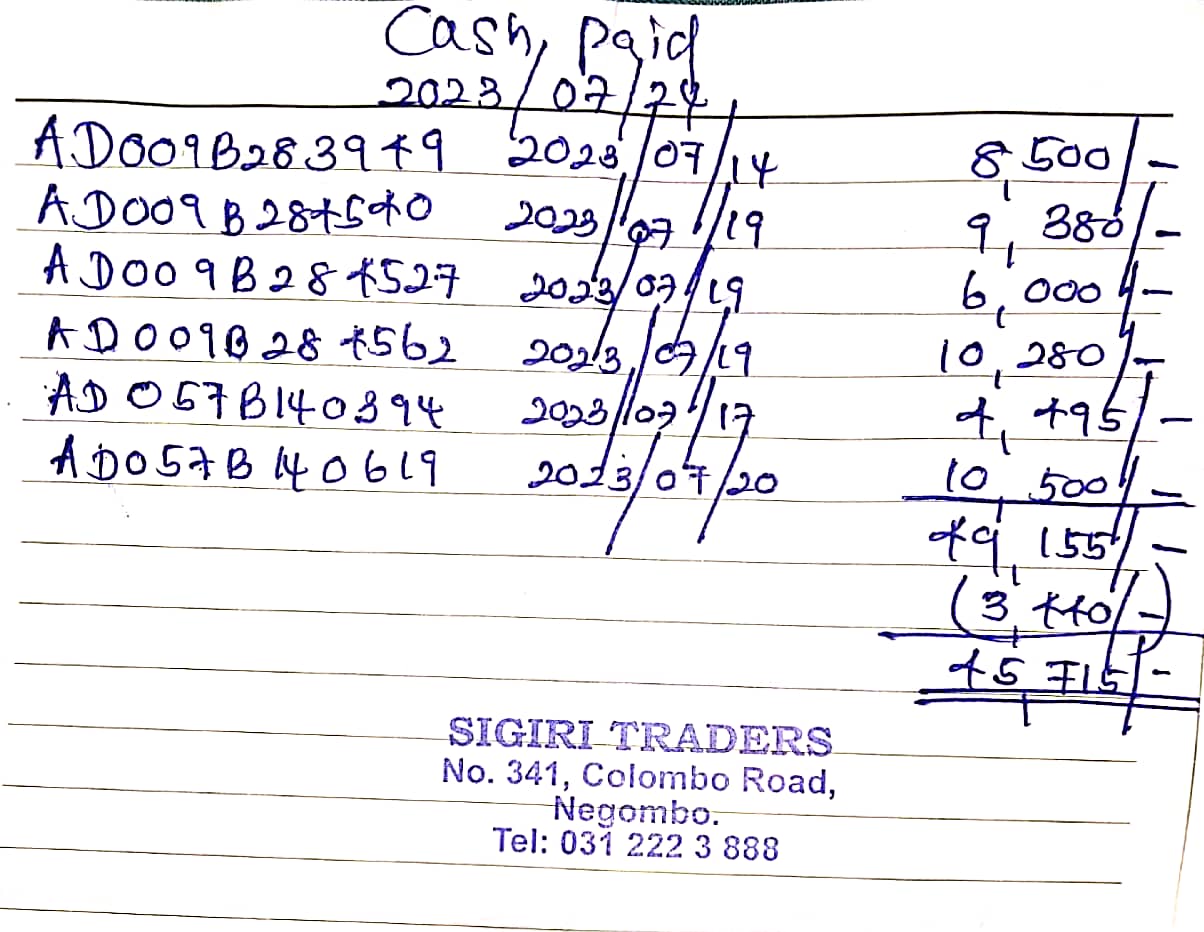 Cash, Paid
2023/07/24
AD009B283949 2023/07/14 8,500/-
AD009B284540 2023/07/19 9,380/-
AD009B284527 2023/07/19 6,000/-
AD009B284562 2023/07/19 10,280/-
AD057B140394 2023/07/17 4,495/-
AD057B140619 2023/07/20 10,500/-
49,155/-
(3,440/-)
45,715/-
SIGIRI TRADERS
No. 341, Colombo Road,
Negombo.
Tel: 031 222 3 888